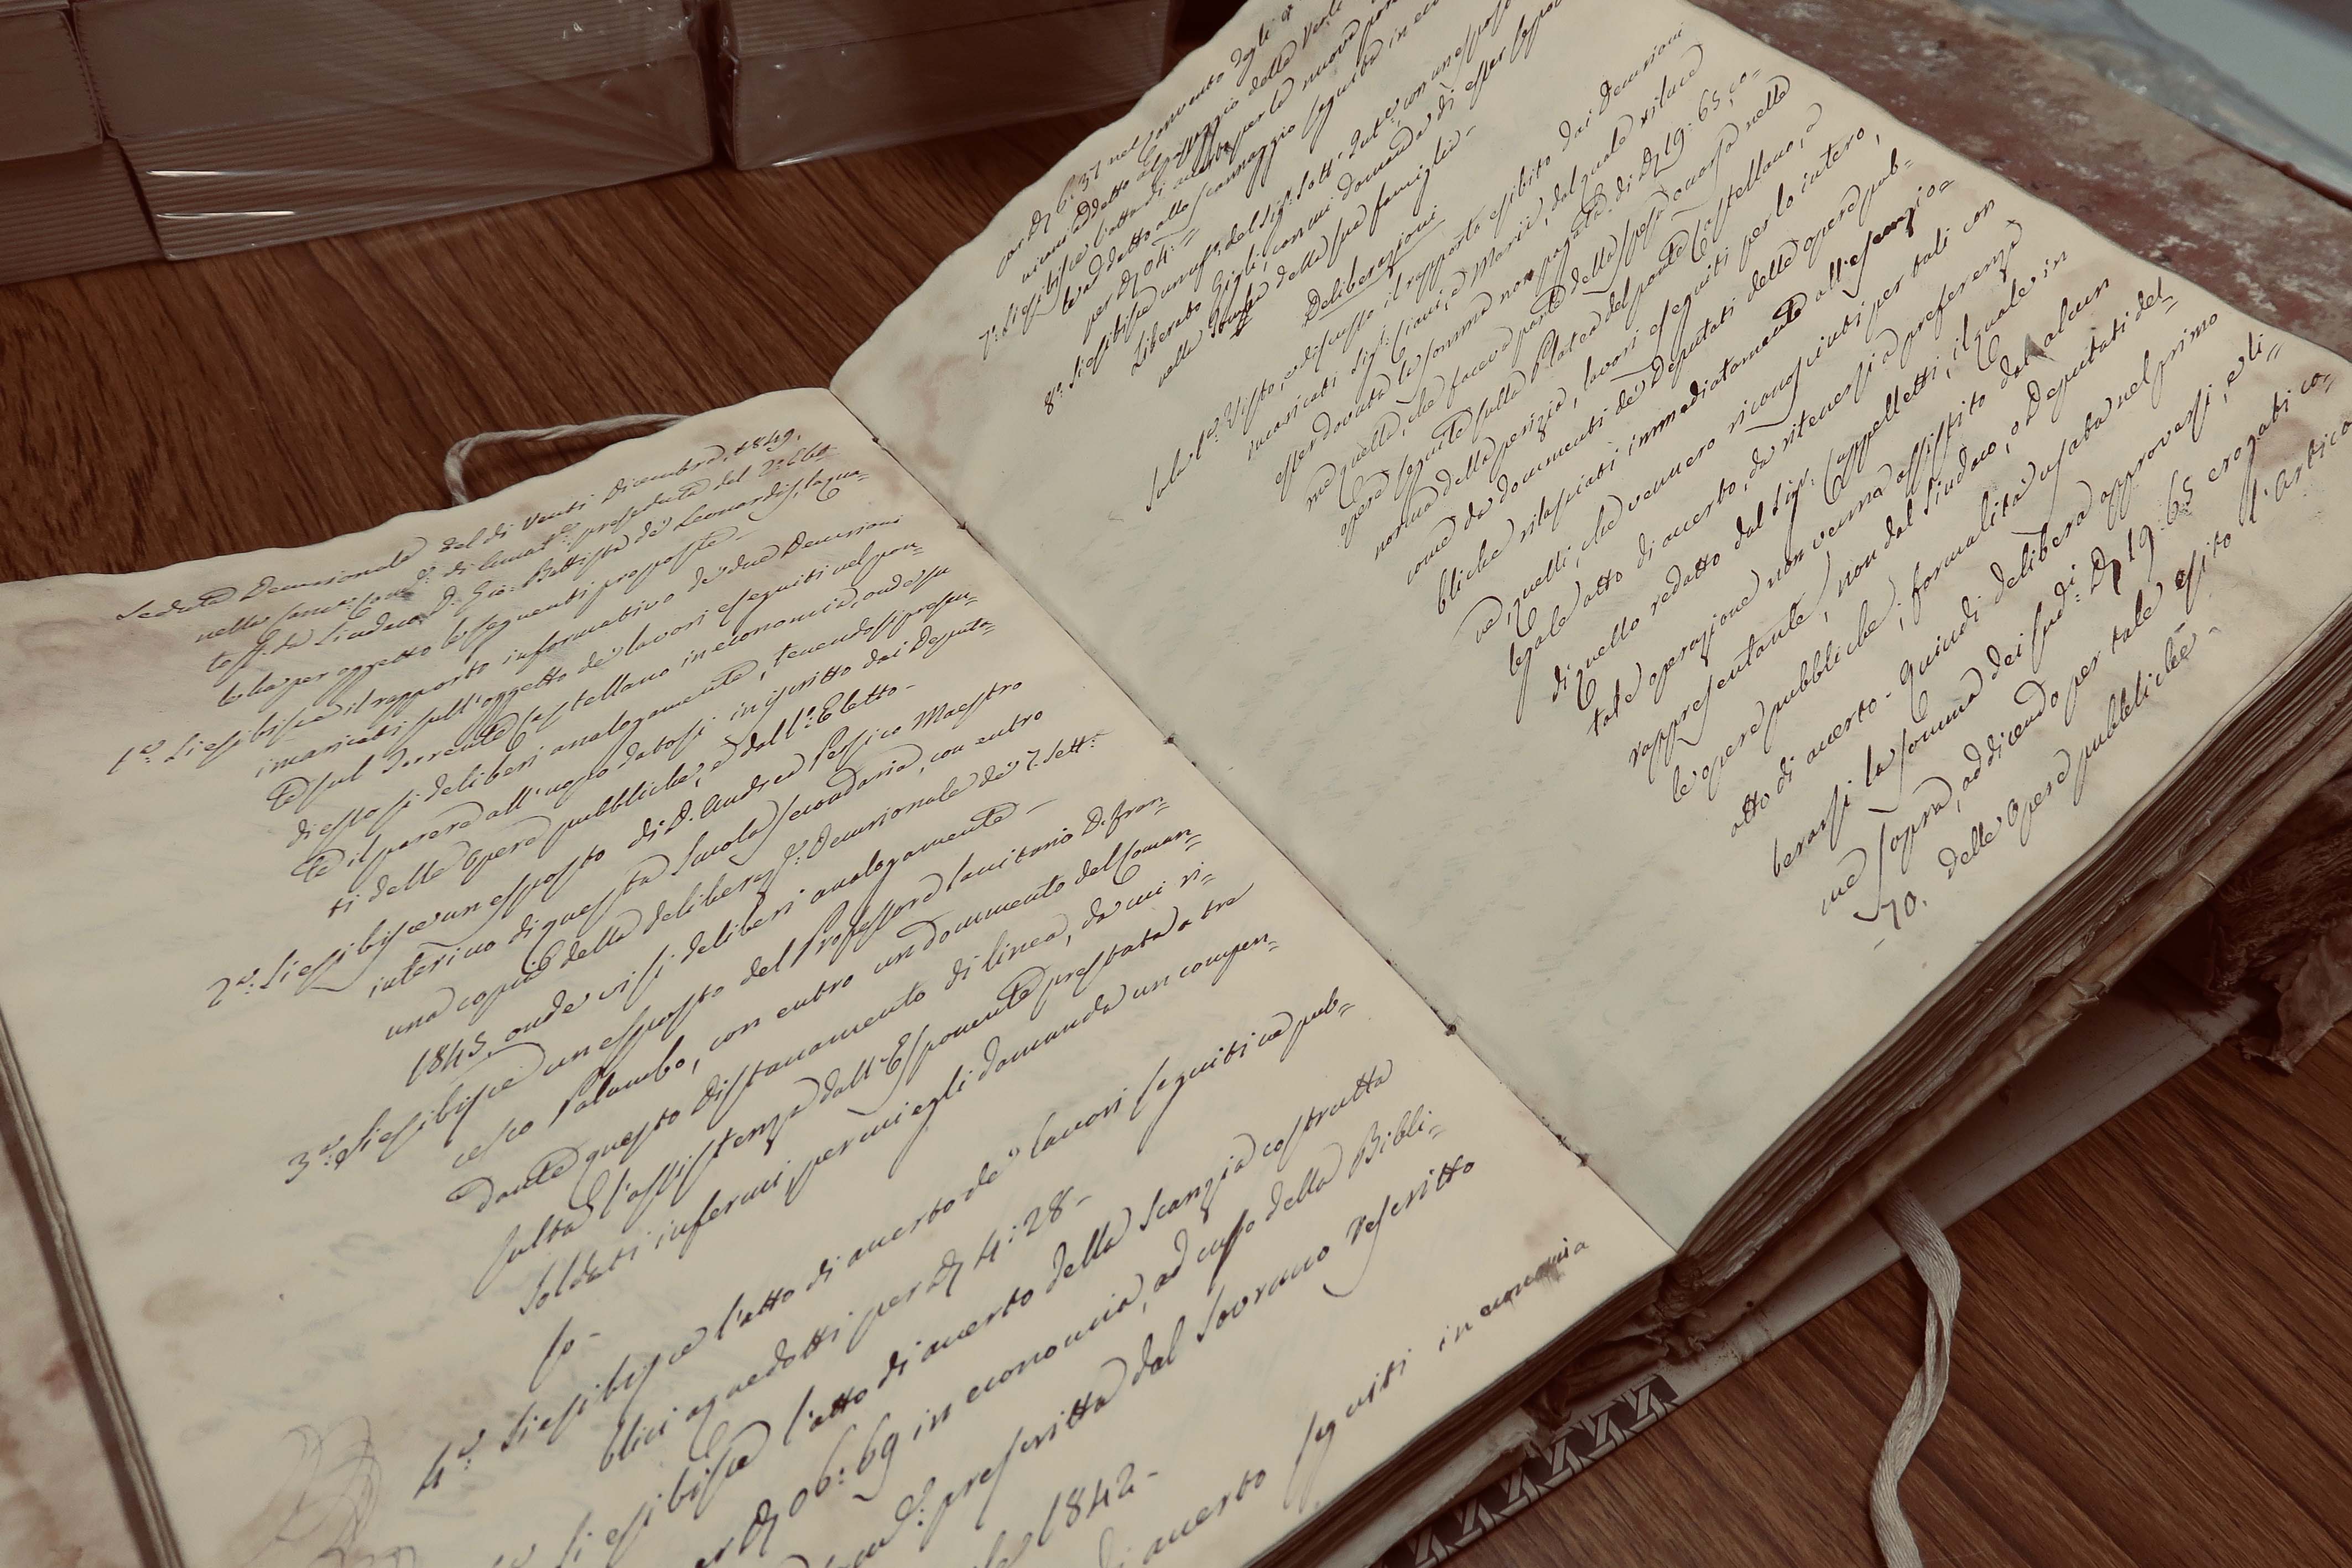 Seduta Decurionale del dì Venti Dicembre 1849,
nella preseduta dal 2º: Elet
to ff. da Sindaco D. Gio: Battista de' Leonardis, la qua-
le ha per oggetto le seguenti proposte -
1ª: Si esibisce il rapporto informativo de' due Decurioni
incaricati sull'oggetto de' lavori eseguiti nel pon-
te sul Torrente Castellano in economia, onde su
di esso si deliberi analogamente, tenendosi presen-
te il parere all'uopo datosi in iscritto dai Deputa-
ti delle Opere pubbliche, e dal 1º: Eletto -
2ª: Si esibisce un esposto di D. Andrea Persico Maestro
interino di questa Scuola secondaria, con entro
una copia della deliberaz: Decurionale de' 7. Sett:
1845, onde vi si deliberi analogamente -
3ª: Si esibisce un esposto del Professore sanitario D. Fran-
cesco Palumbo, con entro un documento del Coman-
dante questo distaccamento di linea, da cui ri-
sulta l'assistenza dall'Esponente prestata a tre
Soldati infermi, per cui egli domanda un compen-
so -
4ª: Si esibisce l'atto di accerto de' lavori seguiti ca pub-
blici aquedotti per D. 4:28 -
Si esibisce l'atto di accerto della Scanzia costrutta
per D. 06:69 in economia, ad uso della Bibli-
prescritta dal Sovrano Rescritto
1842 -
di accerto seguiti in economia
con D. 6:37 nel convento degli
vicini addetto al passaggio delle
7ª: Si esibisce l'atto di accerto per le nuove
te addette allo scannaggio seguite in
per D. 04: =
8ª: Si esibisce un uff. del Sig: Sott' Int:e, con un esposto
Liberato Gigli, con cui domanda di esser
nella della sua famiglia -
Deliberazioni
Sula 1ª: Visto, e discusso il rapporto esibito dai Decurioni
incaricati Sig:i Ciani, e Marii, dal quale rilucè
esser dovuta la somma non pagata di D. 19:65, co-
me quella, che faceva parte della spesa occorsa nelle
opere seguite sulla Platea del ponte Castellano, a
norma della perizia, lavori eseguiti per lo intero,
come da documenti de' Deputati delle opere pub-
bliche rilasciati immediatamente all'esecuzio=
ne, quelli, che vennero riconosciuti per tali con
legale atto di accerto, da ritenersi a preferenza
di quello redatto dal Sig:r Cappelletti, il quale in
tale operazione non venne assistito da alcun
rappresentante, non dal Sindaco, o Deputati del-
le opere pubbliche, formalità usata nel primo
atto di accerto - Quindi delibera approvarsi, e li-
berarsi la somma dei sud:i D. 19:65 erogati co-
me sopra, addicendo per tale esito l'artico
-70. delle Opere pubbliche -